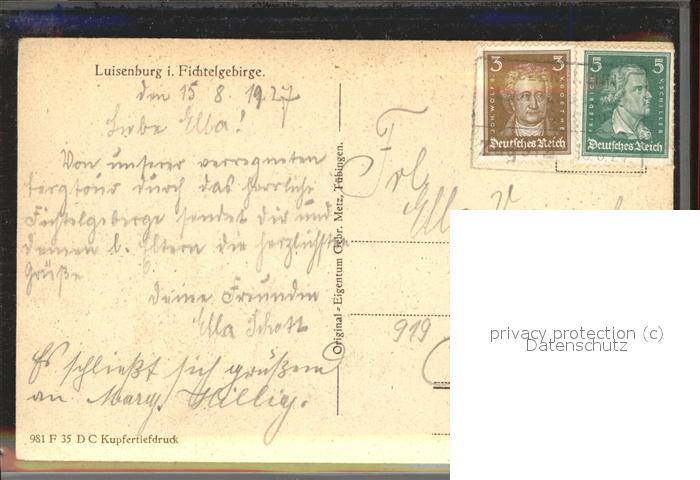 Luisenburg i. Fichtelgebirge.
den 15 8. 1927
Liebe Ella!
Von unserer verregneten
Bergtour durch das herrliche
Fichtelgebirge sendet dir und
deinen l. Eltern die herzlichsten
Grüße
Deine Freundin
Ella Schott
Es schließt sich grüßend
an Marg. Hillig.
981 F 35 D C Kupfertiefdruck
Original - Eigentum Gebr. Metz, Tübingen.
3 3
JOH. WOLFG. V. GOETHE
Deutsches Reich
5 5
FRIEDRICH V. SCHILLER
Deutsches Reich
Frl.
Ella
919
privacy protection (c)
Datenschutz